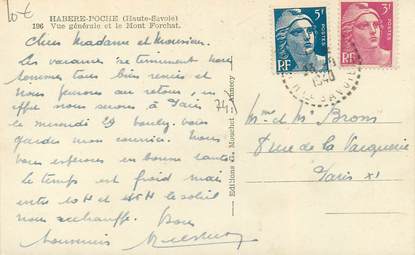 10€
HABERE-POCHE (Haute-Savoie)
196 Vue générale et le Mont Forchat.
Chers Madame et Monsieur.
Les vacances se terminent nous
sommes tous bien remis et
nous pensons au retour, en
effet nous serons à Paris
le mercredi 29
garder mon courrier. Nous
vous espérons en bonne santé
le temps est froid mais
entre 10H et 16H le soleil
nous réchauffe. Bon
souvenir
74.
Editions J. Mouchet Annecy
5F
POSTES
RF
3F
POSTES
RF
SAVOIE
M et M Brons
8 rue de la Vacquerie
Paris XI